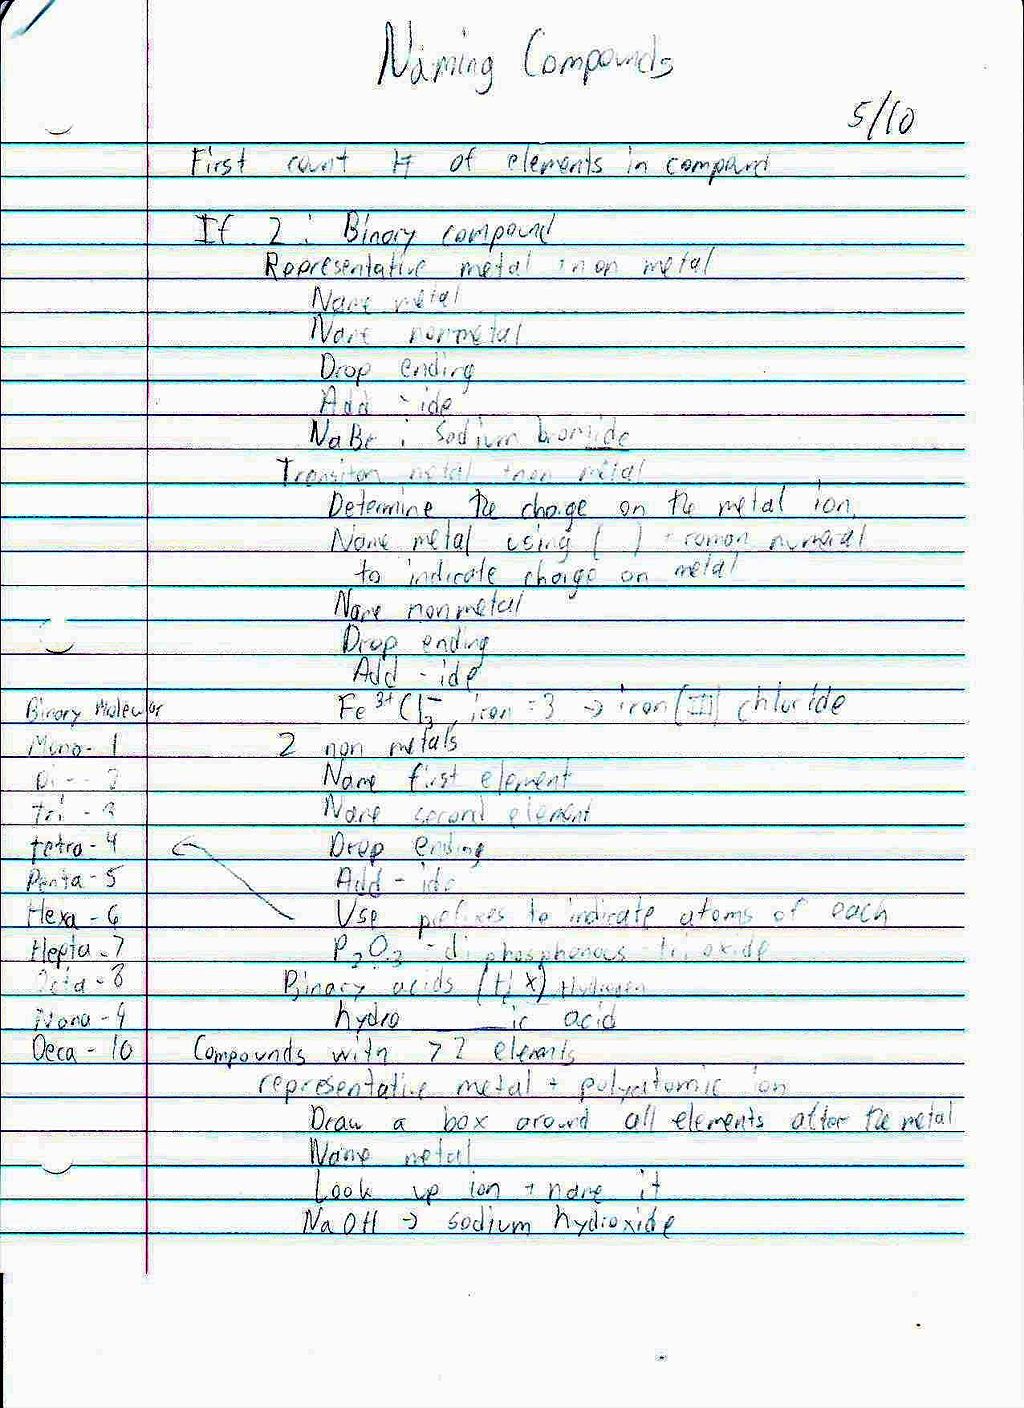 Naming Compounds
5/10
First count # of elements in compound
If 2 : Binary compound
Representative metal + non metal
Name metal
Name nonmetal
Drop ending
Add -ide
NaBr : sodium bromide
Transiton metal + non metal
Determine the charge on the metal ion.
Name metal using ( ) + roman numeral
to indicate charge on metal
Name nonmetal
Drop ending
Add -ide
Fe³⁺Cl₃⁻, iron = 3 → iron (III) chloride
2 non metals
Name first element
Name second element
Drop ending
Add - ide
Use prefixes to indicate atoms of each
P₂O₃ - di trioxide
Binary Molecular
Mono- 1
Di - 2
tri - 3
tetra- 4
Penta - 5
Hexa - 6
Hepta - 7
Octa - 8
Nona - 9
Deca - 10
Binary acids (H, X) Hydrogen
hydro ____ ic acid
Compounds with > 2 elements
representative metal + polyatomic ion
Draw a box around all elements after the metal
Name metal
Look up ion + name it
NaOH → sodium hydroxide